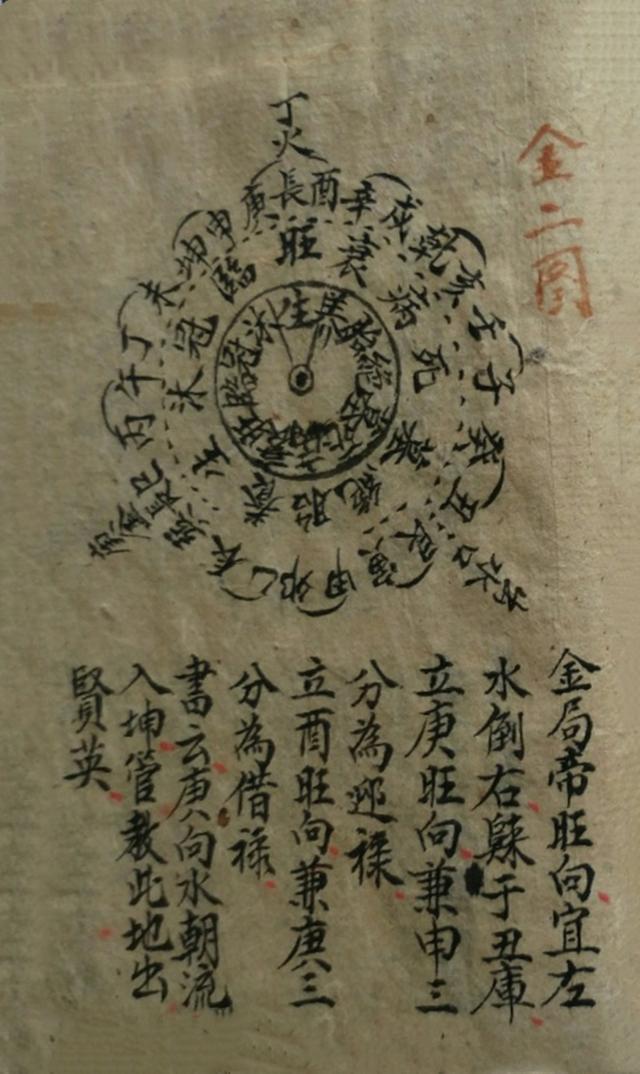 金二圖
丁火
庚 長 酉 辛 戌 乾 亥 壬 子 癸 丑 艮 寅 甲 卯 乙 巳 丙 午 丁 未 坤 申
旺 衰 病 死 墓 絕 胎 養 生 沐 冠 臨
生 養 胎 絕 臨 冠 沐
金局帝旺向宜左
水倒右歸于丑庫
立庚旺向兼申三
分為迎祿
立酉旺向兼庚三
分為借祿
書云庚向水朝流
入坤管教此地出
賢英